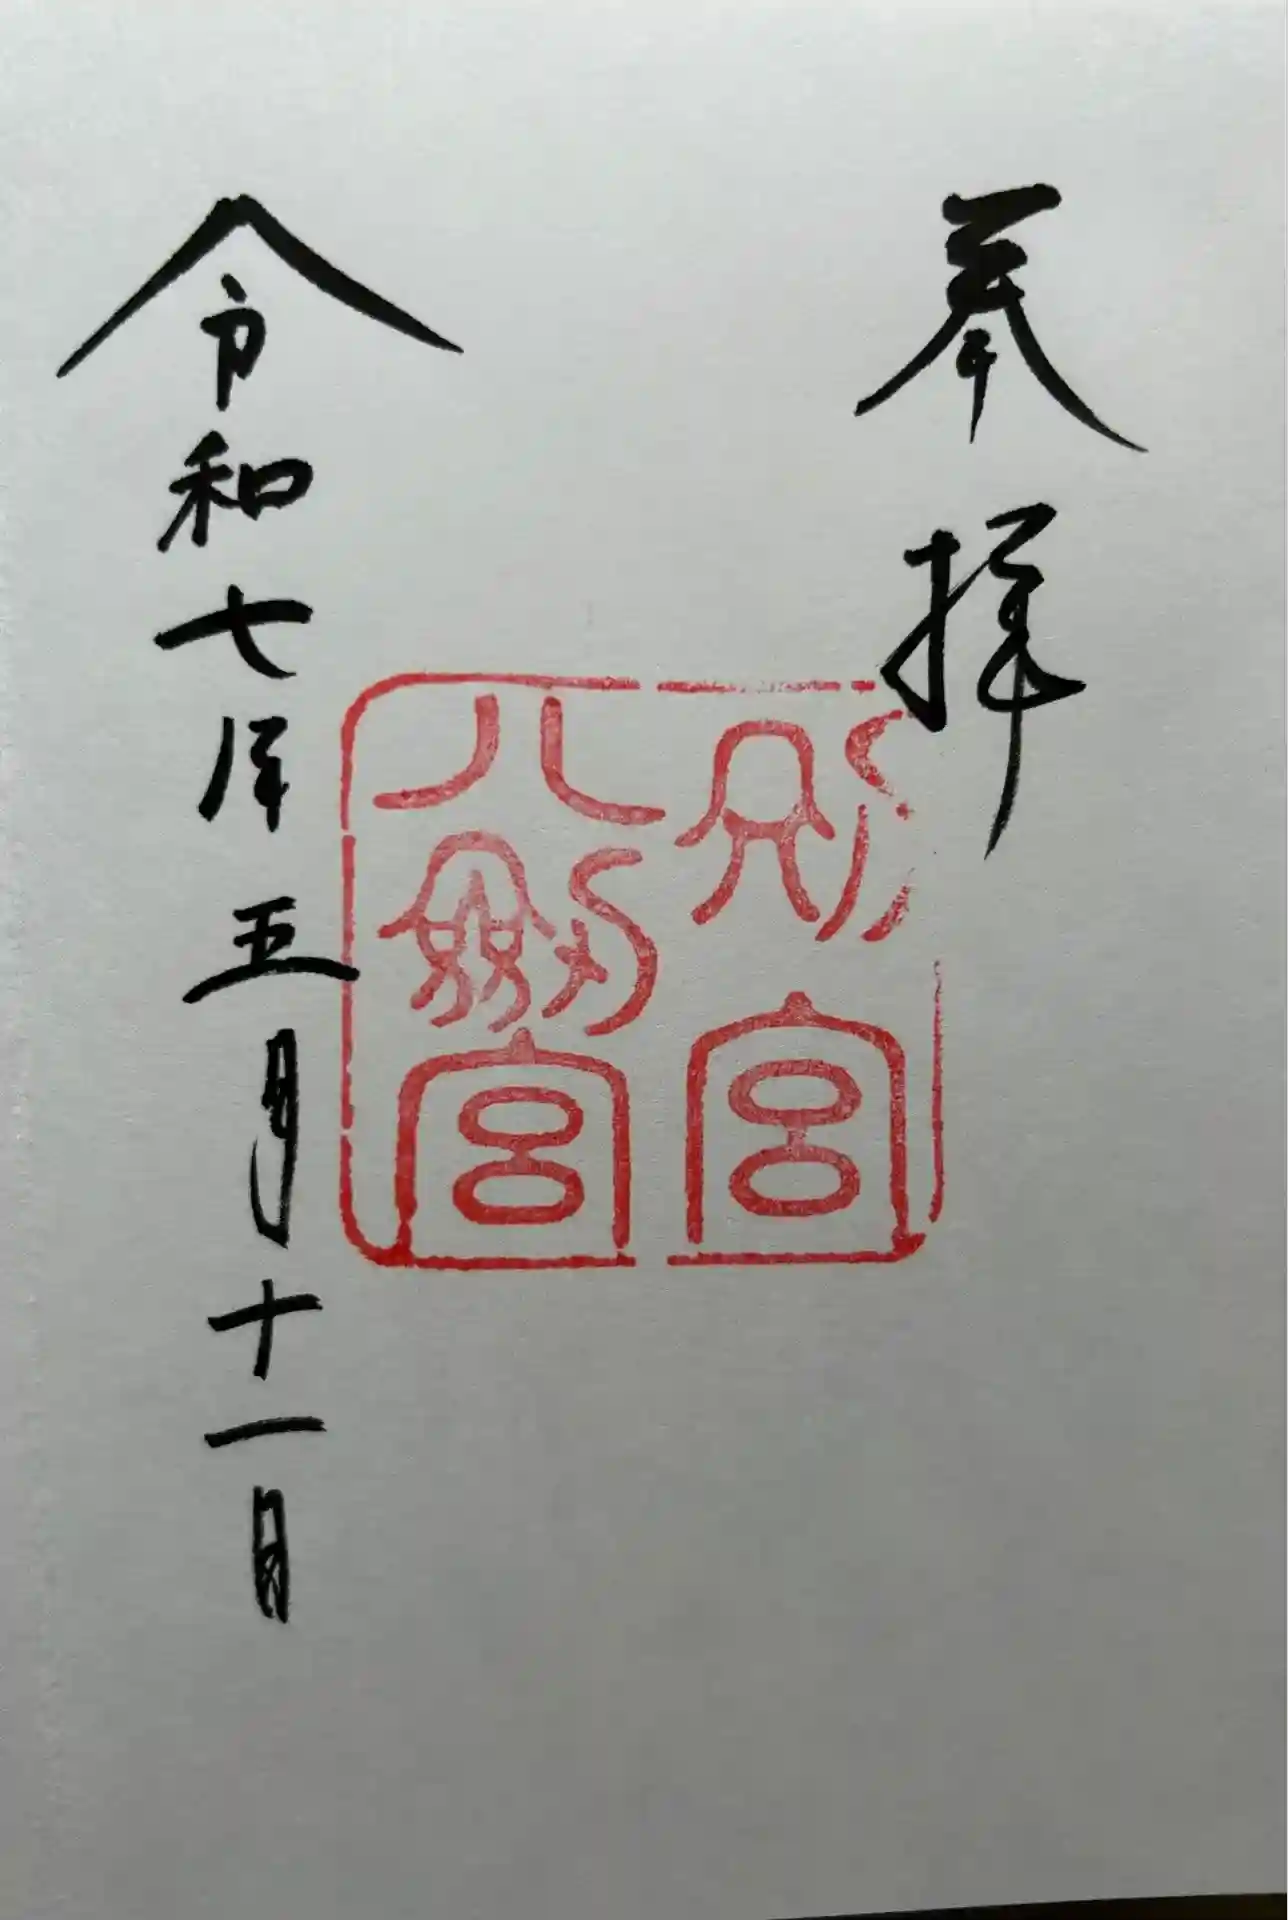 奉拝
別宮
八剣宮
令和七年五月十一日